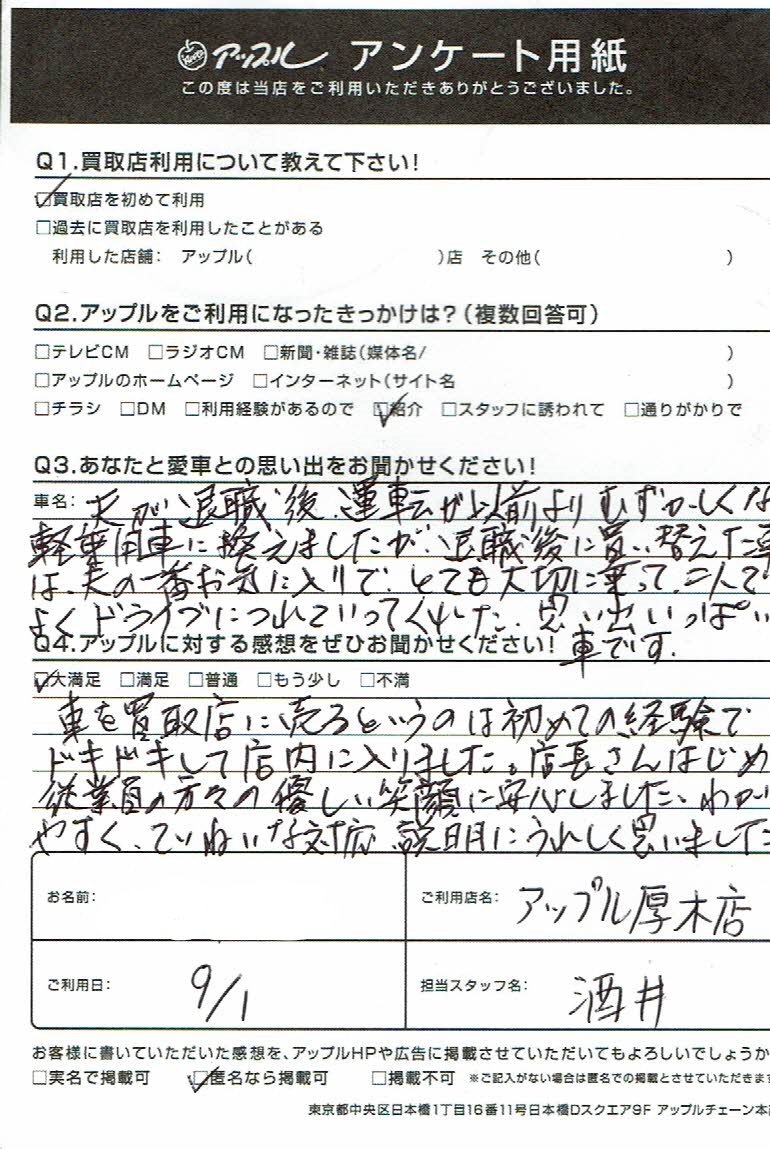 アップル アンケート用紙
この度は当店をご利用いただきありがとうございました。
Q1.買取店利用について教えて下さい!
☑買取店を初めて利用
□過去に買取店を利用したことがある
利用した店舗: アップル( )店 その他( )
Q2.アップルをご利用になったきっかけは?(複数回答可)
□テレビCM □ラジオCM □新聞・雑誌(媒体名/ )
□アップルのホームページ □インターネット(サイト名 )
□チラシ □DM □利用経験があるので ☑紹介 □スタッフに誘われて □通りがかりで
Q3.あなたと愛車との思い出をお聞かせください!
車名: 夫が退職後、運転が以前よりむずかしくな
軽乗用車に換えましたが、退職後に買い替えた車
は、夫の一番お気に入りで、とても大切に乗って、二人で
よくドライブにつれていってくれました。思い出いっぱい
車です。
Q4.アップルに対する感想をぜひお聞かせください!
☑大満足 □満足 □普通 □もう少し □不満
車を買取店に売るというのは初めての経験で
ドキドキして店内に入りました。店長さんはじめ
従業員の方々の優しい笑顔に安心しました、わかり
やすく、ていねいな対応、説明にうれしく思いました
お名前:
ご利用店名: アップル厚木店
ご利用日: 9/1
担当スタッフ名: 酒井
お客様に書いていただいた感想を、アップルHPや広告に掲載させていただいてもよろしいでしょうか
□実名で掲載可 ☑匿名なら掲載可 □掲載不可 ※ご記入がない場合は匿名での掲載とさせていただきます
東京都中央区日本橋1丁目16番11号日本橋Dスクエア9F アップルチェーン本